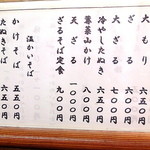 大もり 六五〇円
ざる 六〇〇円
大ざる 七五〇円
冷やしたぬき 六五〇円
冷茶山かけ 八〇〇円
天ざる 一〇〇〇円
ざるそば定食 九〇〇円
温かいそば
かけそば 五五〇円
たぬきそば 六五〇円